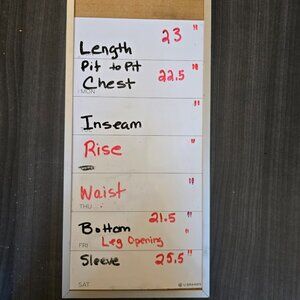 Length 23 "
Pit to Pit
Chest 22.5 "
MON
Inseam "
Rise "
Waist "
THU
Bottom 21.5 "
FRI Leg Opening "
Sleeve 25.5 "
SAT